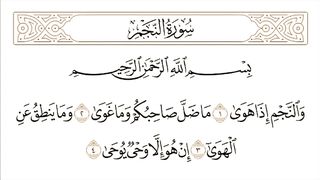 سُورَةُ النَّجْمِ
بِسْمِ اللَّهِ الرَّحْمَٰنِ الرَّحِيمِ
وَالنَّجْمِ إِذَا هَوَىٰ ١ مَا ضَلَّ صَاحِبُكُمْ وَمَا غَوَىٰ ٢ وَمَا يَنطِقُ عَنِ
الْهَوَىٰ ٣ إِنْ هُوَ إِلَّا وَحْيٌ يُوحَىٰ ٤